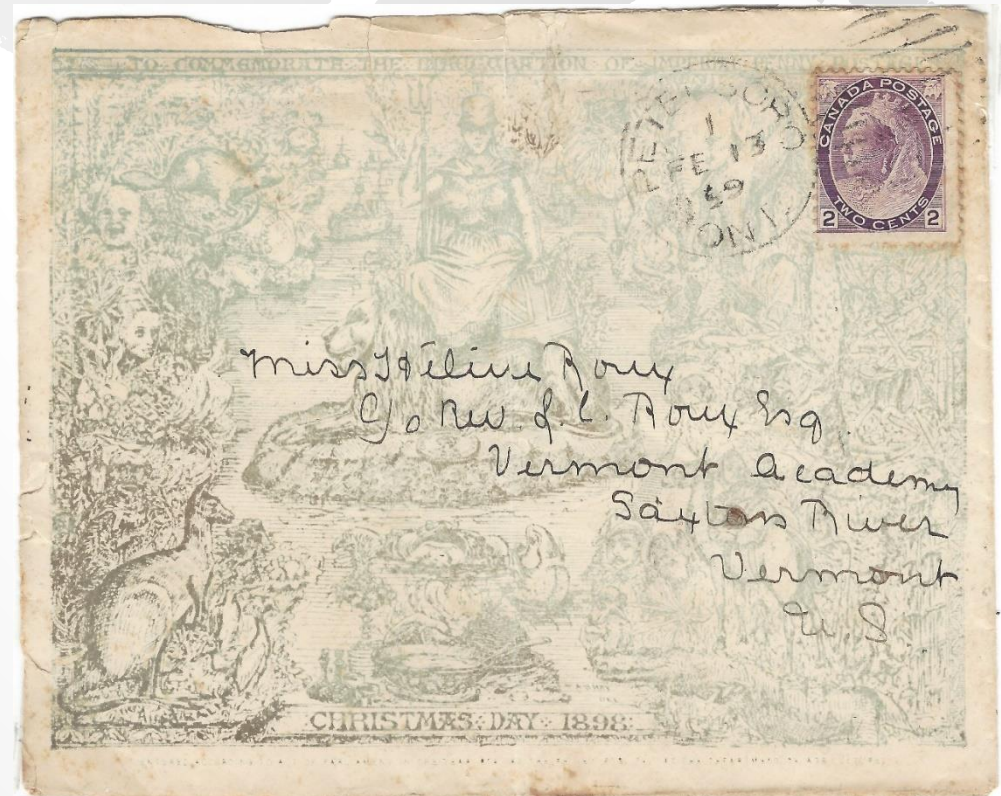 TO COMMEMORATE THE INAUGURATION OF IMPERIAL PENNY
PETERBORO
1
FE 13
99
ONT.
CANADA POSTAGE
2 TWO CENTS 2
Miss Hélène Roux
C/o Rev J. C. Roux Esq.
Vermont Academy
Saxtons River
Vermont
U.S
CHRISTMAS · DAY · 1898